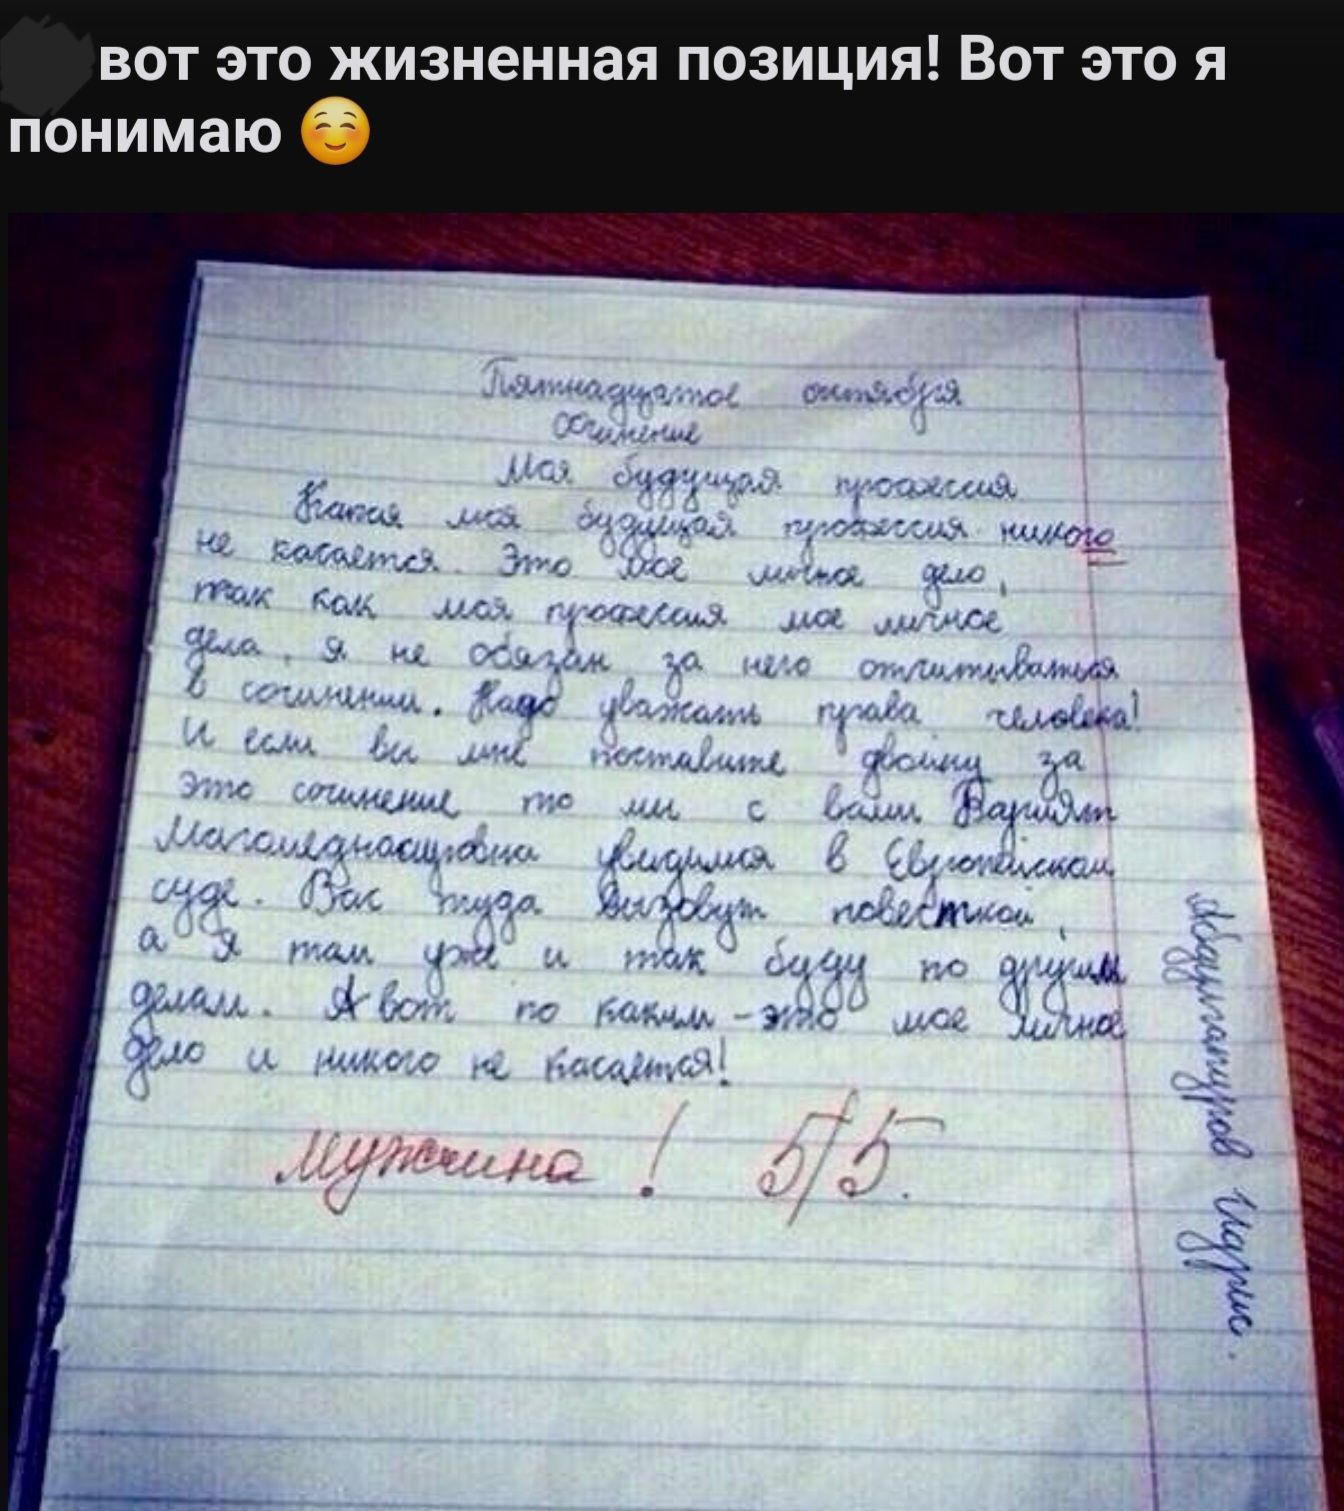 вот это жизненная позиция! Вот это я
понимаю ☺️
Пятнадцатое октября
Сочинение
Моя будущая профессия
Какая моя будущая профессия никого
не касается. Это мое личное дело,
так как моя профессия мое личное
дела, я не обязан за него отчитываться
в сочинении. Надо уважать права человека!
И если вы мне поставите двойку за
это сочинение то мы с вами Барият
Магомеднасуровна увидимся в Европейском
суде. Вас туда вызовут повесткой,
а я там уже и так буду по другим
делам. А вот по каким - это мое личное
дело и никого не касается!
Мужчина! 5/5.
Абдулгапуров Идрис.